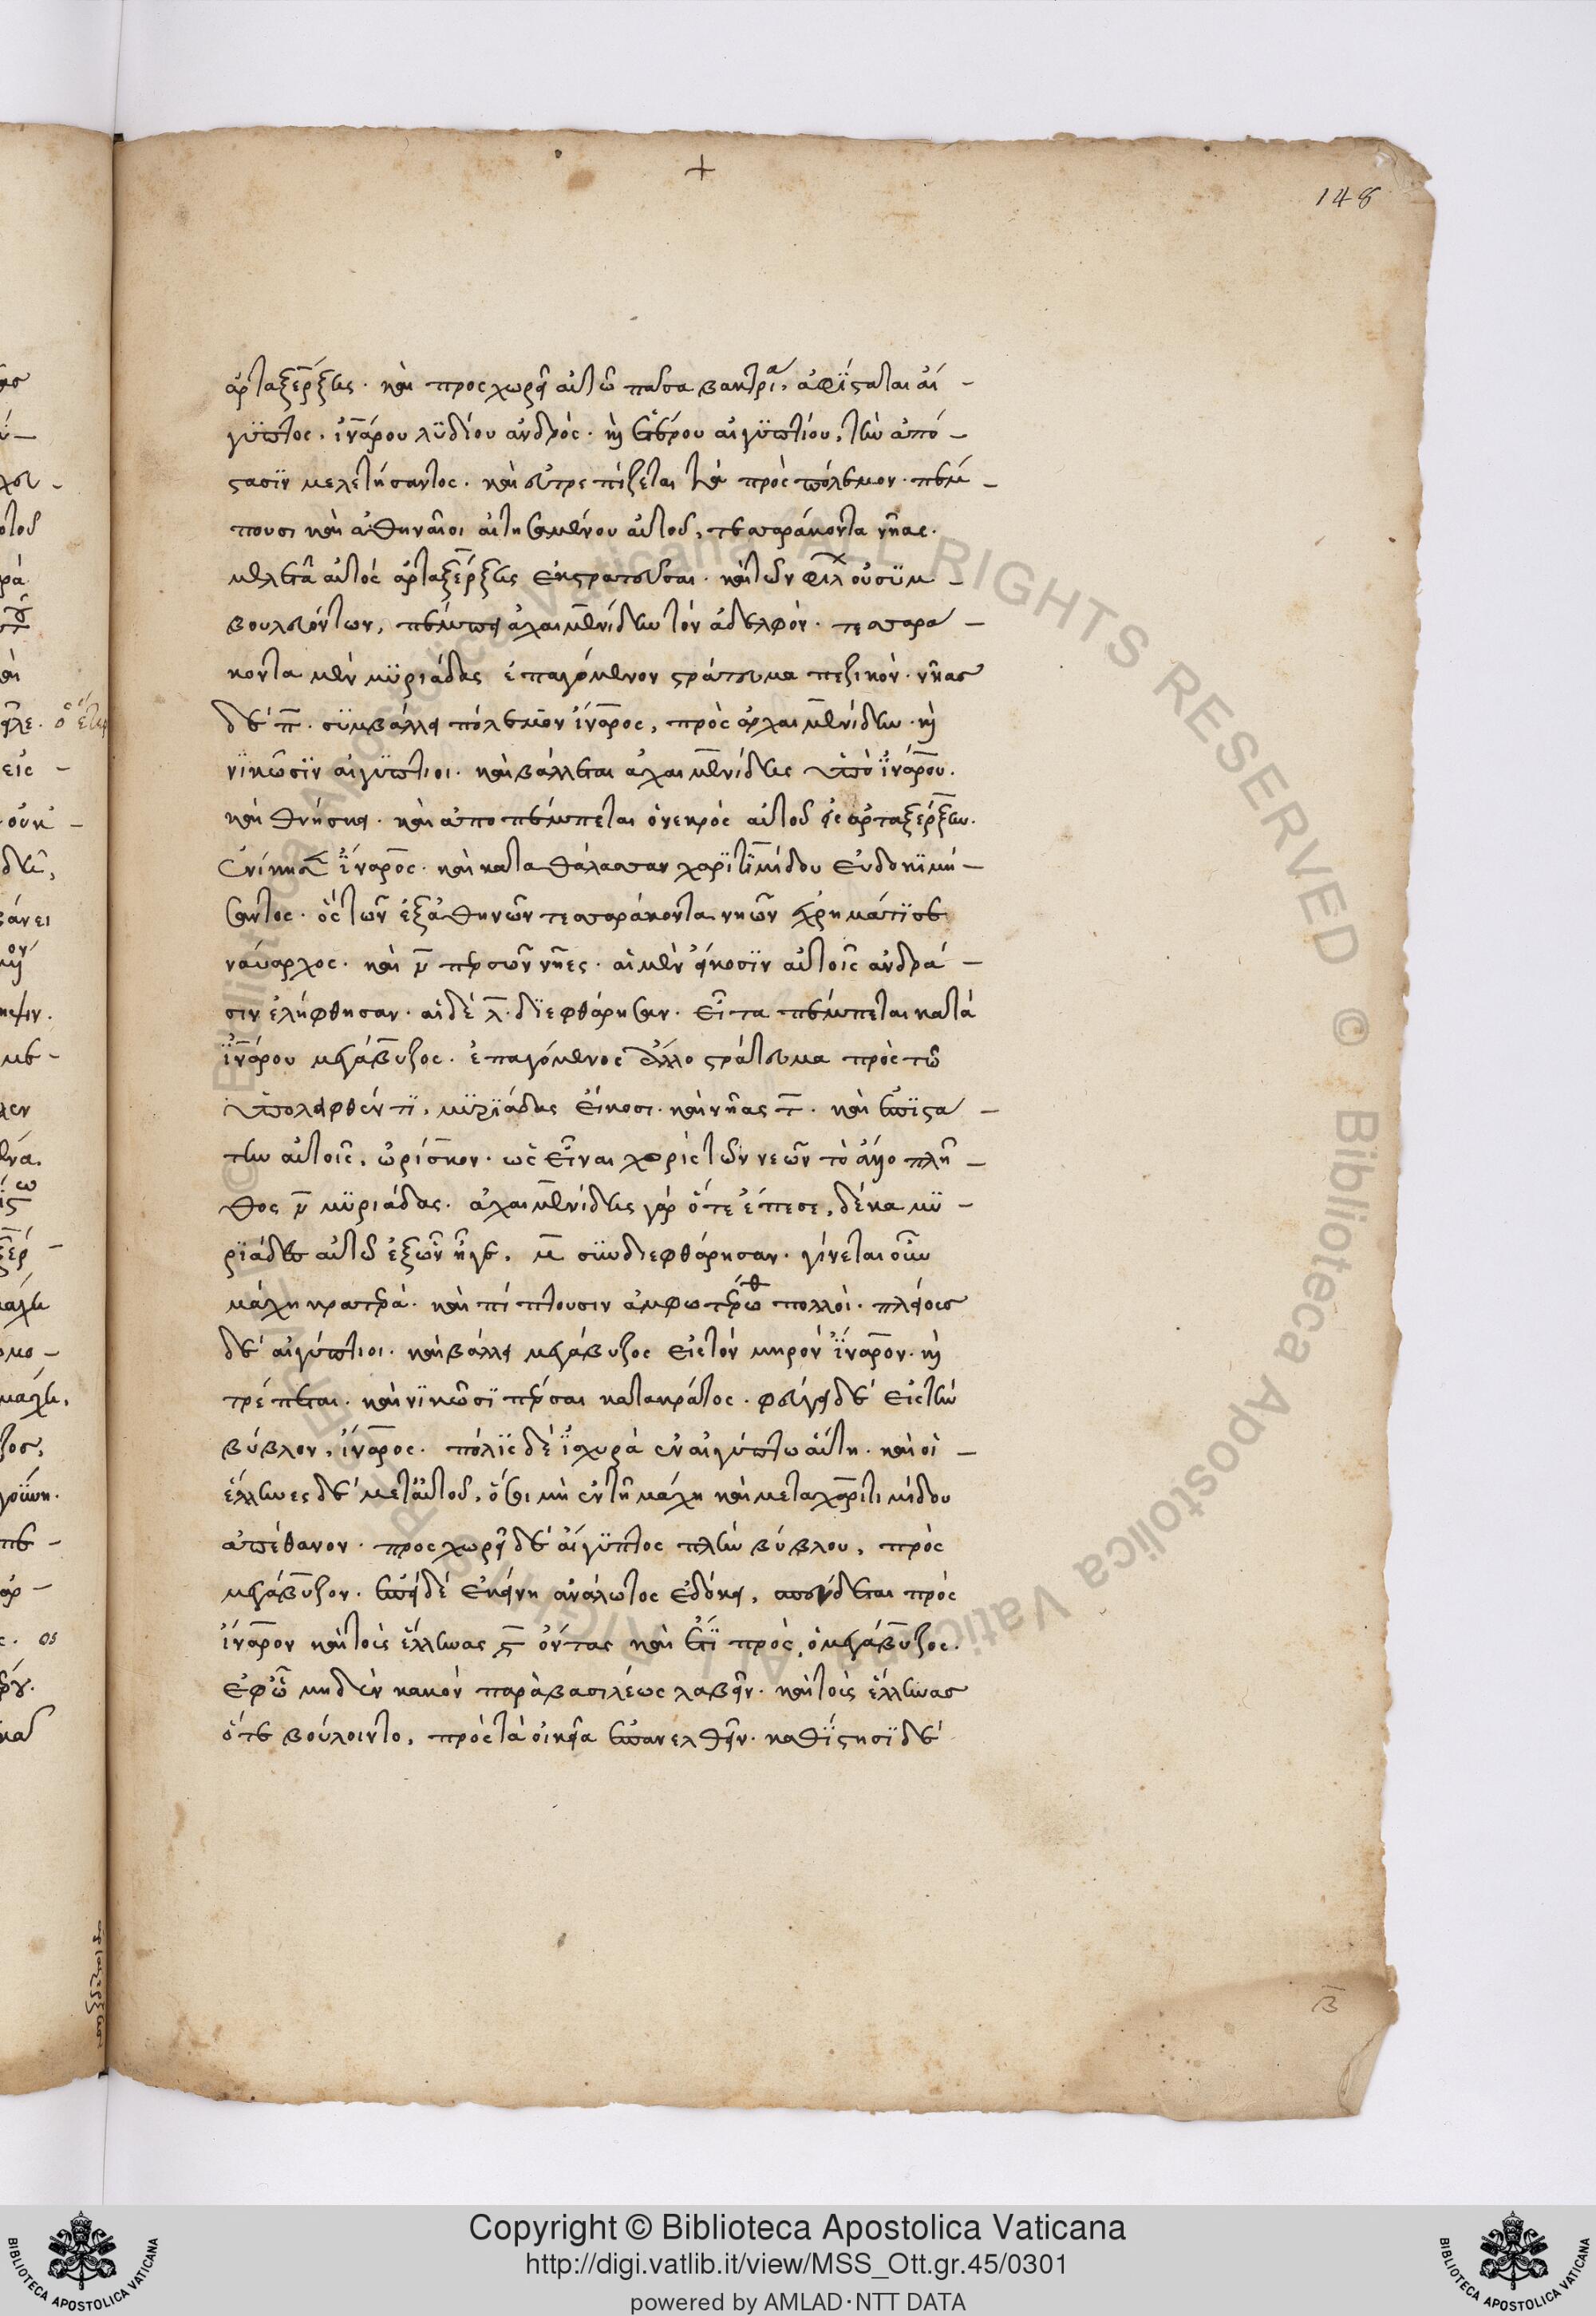 +
148
ἀρταξέρξης · καὶ προσχωρεῖ αὐτῶ πᾶσα βακτρία, ἀφΐσταται αἴ -
γϋπτος · ἰνάρου λϋδίου ἀνδρὸς · καὶ ἑτέρου αἰγϋπτίου, τὴν ἀπό -
στασϊν μελετήσαντος · καὶ εὐτρεπίζεται τὰ πρὸς πόλεμον · πέμ -
πουσι καὶ ἀθηναῖοι αἰτησαμένου αὐτοῦ, τεσσαράκοντα νῆας ·
μελετᾶ αὐτὸς ἀρταξέρξης ἐκστρατεῦσαι · καὶ τῶν φίλ οὐ σϋμ -
βουλευόντων, πέμπει ἀχαιμενίδην τὸν ἀδελφὸν · τεσσαρα -
κοντα μὲν μϋριάδας ἐπαγόμενον στράτευμα πεζικὸν · νῆας
δὲ π · σϋμβάλλει πόλεμον ἴναρος, πρὸς ἀρχαιμενίδην · καὶ
νϊκῶσϊν αἰγϋπτιοι · καὶ βάλλεται ἀχαιμενίδης ὑπὸ ἰνάρου ·
καὶ θνήσκει · καὶ ἀποπέμπεται ὁ νεκρὸς αὐτοῦ εἰς ἀρταξέρξην ·
ἐνίκησε ἴναρος · καὶ κατα θάλασσαν χαρϊτιμίδου εὐδοκϊμή -
σαντος · ὃς τῶν ἐξ ἀθηνῶν τεσσαράκοντα νηῶν ἐχρημάτϊσε
ναύαρχος · καὶ ν περσῶν νῆες · αἱ μὲν εἴκοσϊν αὐτοῖς ἀνδρά -
σιν ἐλήφθησαν · αἱ δὲ λ · δϊεφθάρησαν · εἶτα πέμπεται κατὰ
ἰνάρου μεγάβυζος · ἐπαγόμενος ἄλλο στράτευμα πρὸς τῶ
ὑπολειφθέντϊ, μϋρϊάδας εἴκοσι · καὶ νῆας τ · καὶ ἐπϊστα -
την αὐτοῖς, ὠρίσκον · ὡς εἶναι χωρὶς τῶν νεῶν τὸ ἄλλο πλῆ -
θος ν μϋριάδας · ἀχαιμενίδης γὰρ ὅτε ἔπεσε, δέκα μϋ -
ρϊάδες αὐτῶ ἐξ ὧν ἦγε, μ συνδιεφθάρησαν · γίνεται οὖν
μάχη κρατερὰ · καὶ πίπτουσιν ἀμφωτέρωθ πολλοὶ · πλείους
δὲ αἰγύπτιοι · καὶ βάλλει μεγάβυζος εἰς τὸν μηρὸν ἴναρον · καὶ
τρέπεται · καὶ νϊκῶσϊ πέρσαι κατακράτος · φεύγει δὲ εἰς τὴν
βύβλον, ἴναρος · πόλϊς δὲ ἰσχυρὰ ἐν αἰγύπτω αὕτη · καὶ οἱ -
ἕλληνες δὲ μετ' αὐτοῦ, ὅσοι μὴ ἐν τῆ μάχη καὶ μετα χαριτιμίδου
ἀπέθανον · προσχωρεῖ δὲ αἴγϋπτος πλὴν βύβλου, πρὸς
μεγάβυζον · ἐπεὶ δὲ ἐκείνη ἀνάλωτος ἐδόκει, σπένδεται πρὸς
ἴναρον καὶ τοὺς ἕλληνας ς ὄντας καὶ ἔτϊ πρὸς, ὁ μεγάβυζος ·
ἐφ' ὧ μηδὲν κακὸν παρὰ βασιλέως λαβεῖν · καὶ τοὺς ἕλληνας
ὅτε βούλοιντο, πρὸς τὰ οἰκεῖα ἐπανελθεῖν · καθΐστησϊ δὲ
Copyright © Biblioteca Apostolica Vaticana
http://digi.vatlib.it/view/MSS_Ott.gr.45/0301
powered by AMLAD·NTT DATA